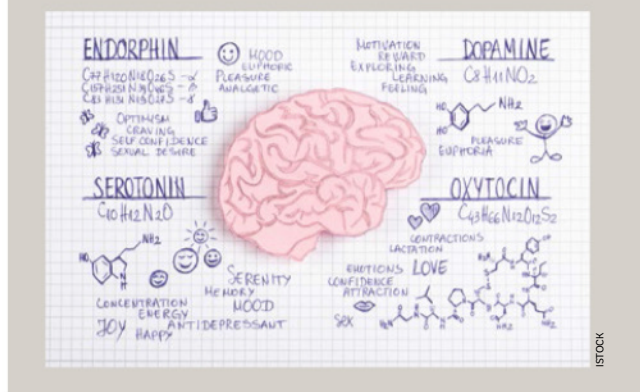 ENDORPHIN
MOOD
EUPHORIC
PLEASURE
ANALGETIC
OPTIMISM
CRAVING
SELF CONFIDENCE
SEXUAL DESIRE
MOTIVATION
REWARD
EXPLORING
LEARNING
FEELING
DOPAMINE
C8H11NO2
HO
NH2
PLEASURE
EUPHORIA
SEROTONIN
C10H12N2O
NH2
HO
SERENITY
MEMORY
MOOD
CONCENTRATION
ENERGY
JOY
ANTIDEPRESSANT
HAPPY
OXYTOCIN
C43H66N12O12S2
CONTRACTIONS
LACTATION
EMOTIONS LOVE
CONFIDENCE
ATTRACTION
SEX
ISTOCK